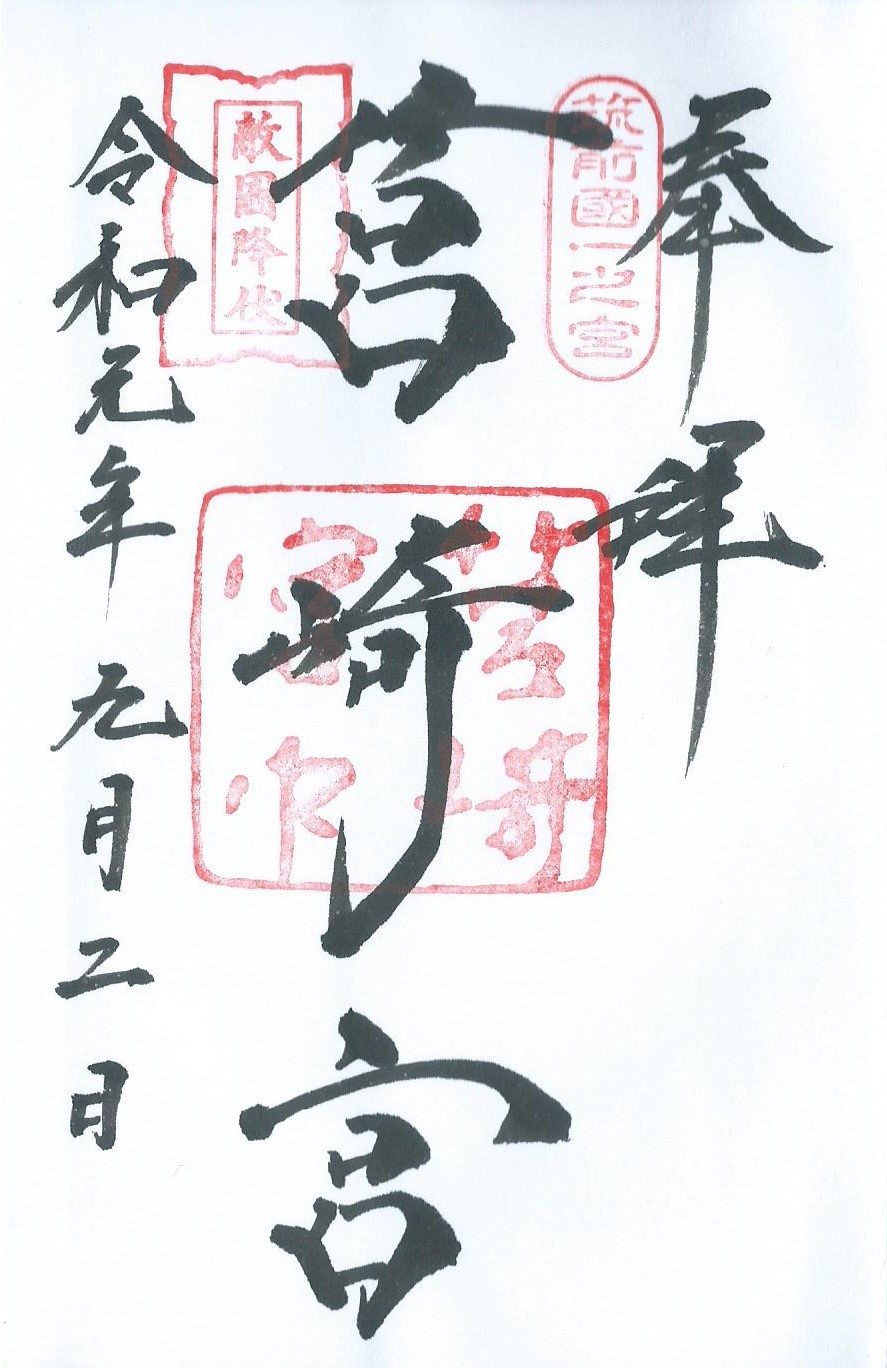 奉拝
筑前國一之宮
筥崎宮
敵国降伏
筥崎宮印
令和元年 九月二日